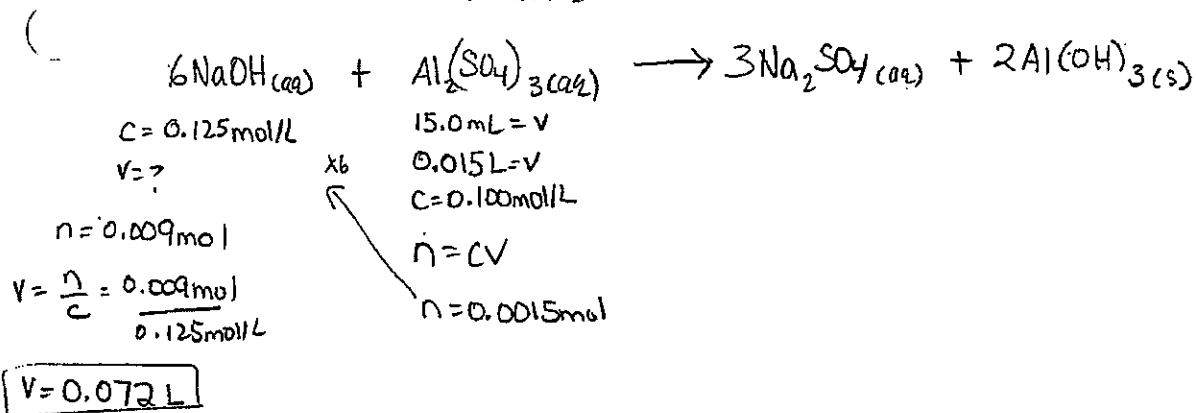 6NaOH(aq) + Al₂(SO₄)₃(aq) → 3Na₂SO₄(aq) + 2Al(OH)₃(s)
C = 0.125mol/L
V = ?
n = 0.009mol
V = n/C = 0.009mol / 0.125mol/L
V = 0.072 L
x6
15.0mL = V
0.015L = V
C = 0.100mol/L
n = CV
n = 0.0015mol